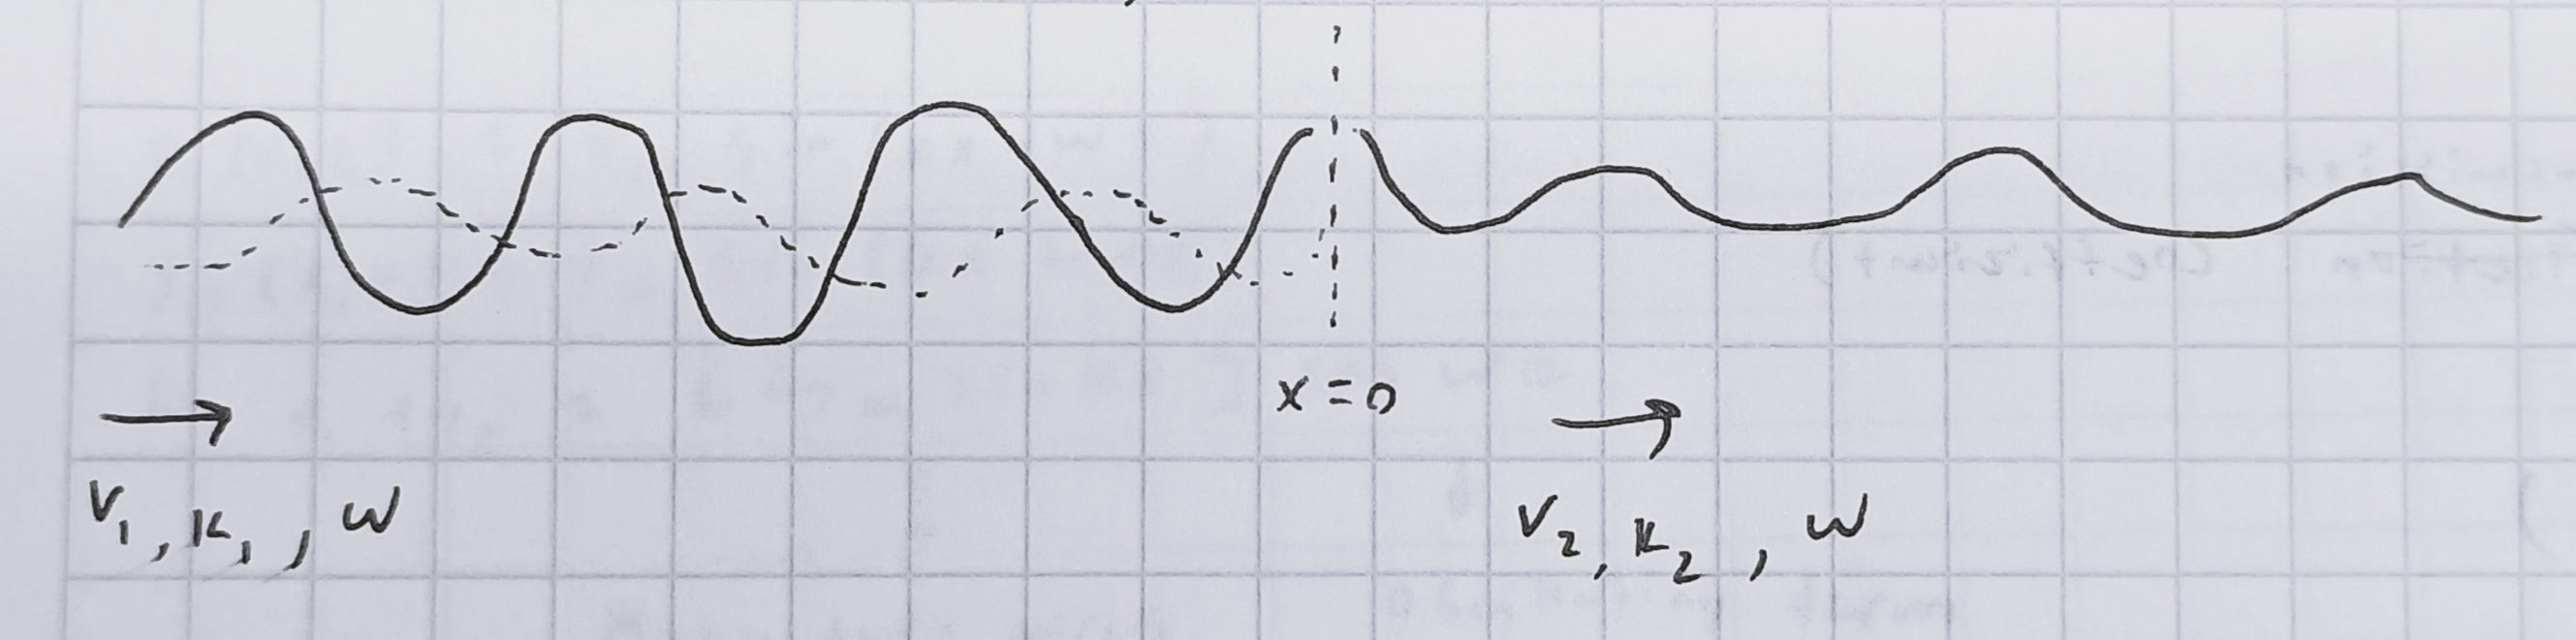 x = 0
v₁, k₁, w
v₂, k₂, w